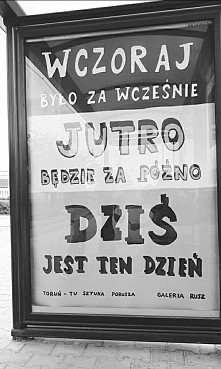 WCZORAJ
BYŁO ZA WCZEŚNIE
JUTRO
BĘDZIE ZA PÓŹNO
DZIŚ
JEST TEN DZIEŃ
TORUŃ - TU SZTUKA PORUSZA GALERIA RUSZ